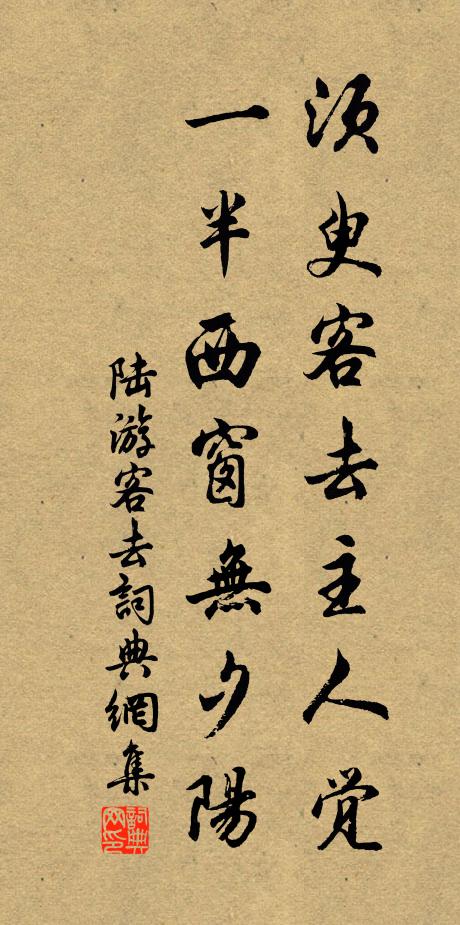 須臾客去主人觉
一半西窗無夕陽
陆游客去詞典網集
詞典
网印